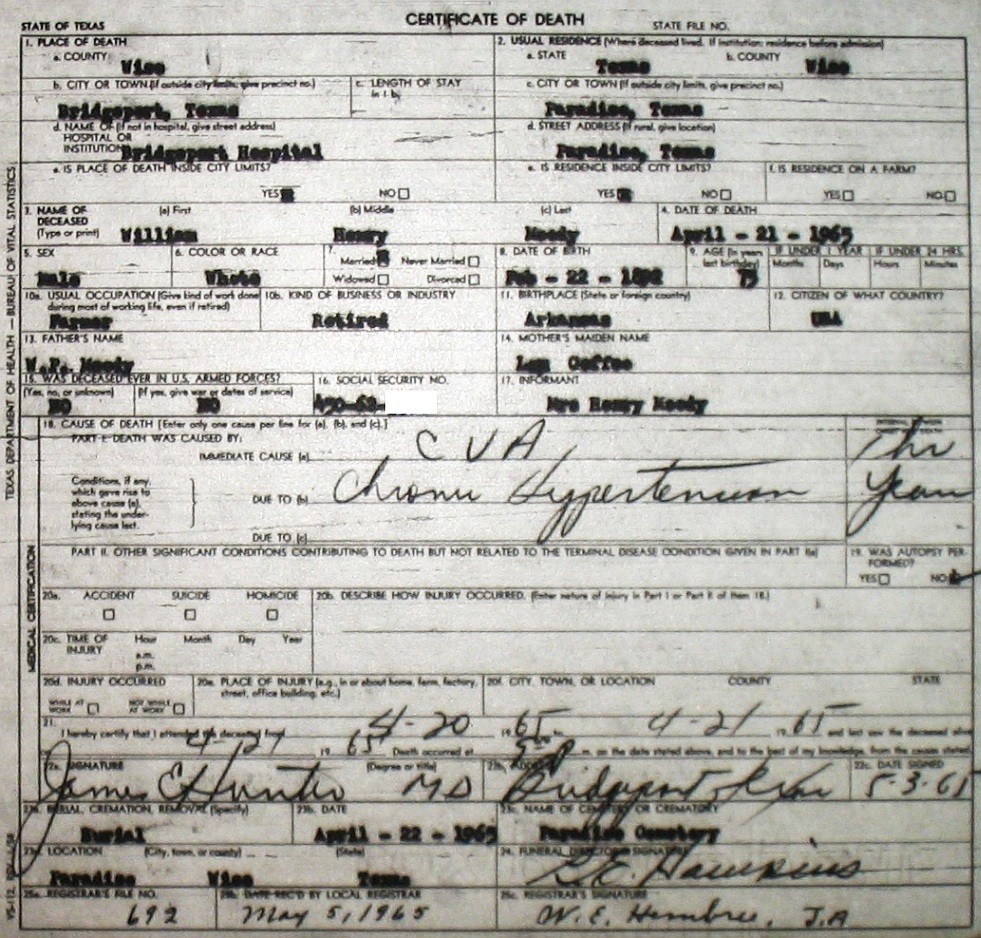 CERTIFICATE OF DEATH
STATE OF TEXAS STATE FILE NO.
1. PLACE OF DEATH 2. USUAL RESIDENCE (Where deceased lived. If institution: residence before admission)
a. COUNTY Wise a. STATE Texas b. COUNTY Wise
b. CITY OR TOWN (If outside city limits, give precinct no.) c. LENGTH OF STAY in 1 b. c. CITY OR TOWN (If outside city limits, give precinct no.)
Bridgeport, Texas Paradise, Texas
d. NAME OF (If not in hospital, give street address) d. STREET ADDRESS (If rural, give location)
HOSPITAL OR
INSTITUTION Bridgeport Hospital Paradise, Texas
e. IS PLACE OF DEATH INSIDE CITY LIMITS? e. IS RESIDENCE INSIDE CITY LIMITS? f. IS RESIDENCE ON A FARM?
YES NO YES NO YES NO
3. NAME OF DECEASED (Type or print) (a) First (b) Middle (c) Last 4. DATE OF DEATH
William Henry Moody April - 21 - 1965
5. SEX 6. COLOR OR RACE 7. Married Never Married 8. DATE OF BIRTH 9. AGE (In years last birthday) IF UNDER 1 YEAR IF UNDER 24 HRS.
Male White Widowed Divorced Feb - 22 - 1892 73 Months Days Hours Minutes
10a. USUAL OCCUPATION (Give kind of work done during most of working life, even if retired) 10b. KIND OF BUSINESS OR INDUSTRY 11. BIRTHPLACE (State or foreign country) 12. CITIZEN OF WHAT COUNTRY?
Farmer Retired Arkansas USA
13. FATHER'S NAME 14. MOTHER'S MAIDEN NAME
W.P. Moody Coffee
15. WAS DECEASED EVER IN U.S. ARMED FORCES? 16. SOCIAL SECURITY NO. 17. INFORMANT
(Yes, no, or unknown) (If yes, give war or dates of service)
NO NO Mrs Henry Moody
18. CAUSE OF DEATH [Enter only one cause per line for (a), (b), and (c).]
PART I. DEATH WAS CAUSED BY:
IMMEDIATE CAUSE (a) CVA
Conditions, if any, which gave rise to above cause (a), stating the underlying cause last. DUE TO (b) Chronic Hypertension Years
DUE TO (c)
PART II. OTHER SIGNIFICANT CONDITIONS CONTRIBUTING TO DEATH BUT NOT RELATED TO THE TERMINAL DISEASE CONDITION GIVEN IN PART I(a) 19. WAS AUTOPSY PERFORMED?
YES NO
20a. ACCIDENT SUICIDE HOMICIDE 20b. DESCRIBE HOW INJURY OCCURRED. (Enter nature of injury in Part I or Part II of item 18.)
20c. TIME OF INJURY Hour Month Day Year
a.m.
p.m.
20d. INJURY OCCURRED 20e. PLACE OF INJURY (e.g., in or about home, farm, factory, street, office building, etc.) 20f. CITY, TOWN, OR LOCATION COUNTY STATE
WHILE AT WORK NOT WHILE AT WORK
21. I hereby certify that I attended the deceased from 4-20 1965 to 4-21 1965 and last saw the deceased alive
4-21 1965 Death occurred at m. on the date stated above, and to the best of my knowledge, from the causes stated.
22a. SIGNATURE (Degree or title) 22b. ADDRESS 22c. DATE SIGNED
James E Hunter MD Bridgeport Texas 5-3-65
23a. BURIAL, CREMATION, REMOVAL (Specify) 23b. DATE 23c. NAME OF CEMETERY OR CREMATORY
Burial April - 22 - 1965 Paradise Cemetery
23d. LOCATION (City, town, or county) (State) 24. FUNERAL DIRECTOR'S SIGNATURE
Paradise Wise Texas Hawkins
25a. REGISTRAR'S FILE NO. 25b. DATE REC'D BY LOCAL REGISTRAR 25c. REGISTRAR'S SIGNATURE
692 May 5, 1965 W. E. Hembree, J.A
TEXAS DEPARTMENT OF HEALTH — BUREAU OF VITAL STATISTICS
MEDICAL CERTIFICATION